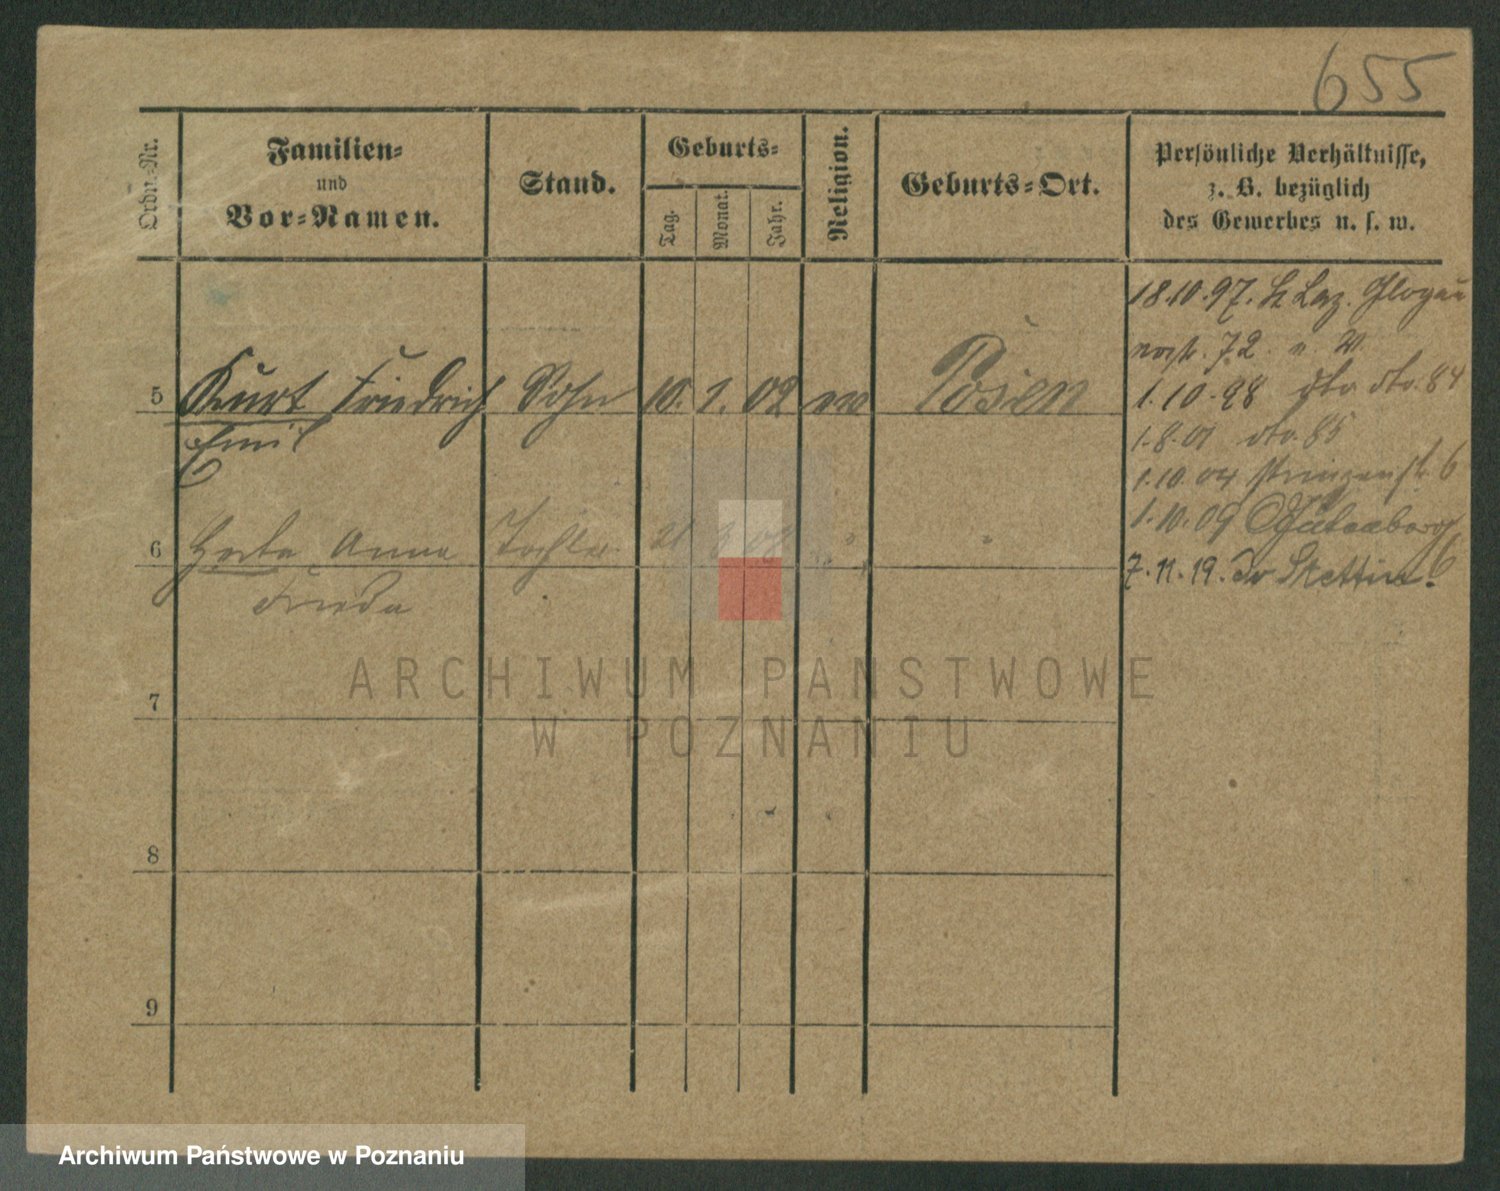 655
Ordn.-Nr.
Familien-
und
Vor-Namen.
Stand.
Geburts-
Tag.
Monat.
Jahr.
Religion.
Geburts-Ort.
Persönliche Verhältnisse,
z. B. bezüglich
des Gewerbes u. s. w.
18.10.97. St Laz. Glogau
5 Kurt Friedrich Sohn 10. 1. 02 ev Posen
Emil
72. u. W.
1.10.98 dto dto. 84
1.8.01 dto. 85
1.10.04 Prinzenstr. 6
1.10.09 Gutenberg
6
7.11.19. In Stettin.
6 Herta Anna Tochter 21 "
Frieda
7
8
9
ARCHIWUM PAŃSTWOWE
W POZNANIU
Archiwum Państwowe w Poznaniu